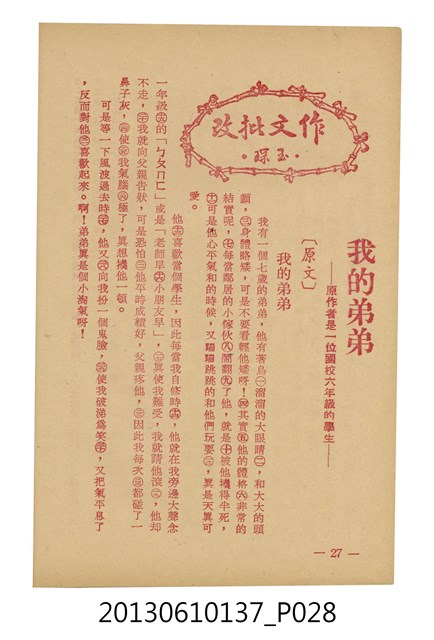 作文批改
・玉琛・
我的弟弟
——原作者是一位國校六年級的學生——
〔原文〕
我的弟弟
我有一個七歲的弟弟，他有著烏㊀溜溜的大眼睛㊁，和大大的頭
顱，㊂身體略矮，可是不要看輕他矮呀！㊃其實㊄他的體格㊅非常的
結實呢，㊆每當鄰居的小傢伙㊇鬧翻㊈了他，就是㊉被他揍得半死，
可是他心平氣和的時候，又蹦蹦跳跳的和他們玩耍，真是天真可
愛。
他喜歡當個學生，因此每當我自修時，他就在我旁邊大聲念
一年級的「ㄅㄆㄇㄈ」或是「老師早小朋友早」，真使我難受，我就請他滾，他却
不走，我就向父親告狀，可是恐怕他平時成績好，父親疼他，因此我每次都碰了一
鼻子灰，使我氣腦極了，真想揍他一頓。
可是等一下風波過去時，他又向我扮一個鬼臉，使我破涕為笑，又把氣平息了
，反而對他喜歡起來。啊！弟弟真是個小淘氣呀！
— 27 —
20130610137_P028